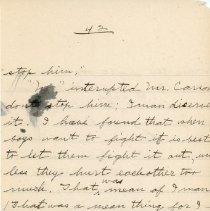 42
stop him."
"No" interrupted Mr. Carson
don't stop him; Iman diserves
it. I have found that when
boys want to fight it is best
to let them fight it out, un-
less they hurt eachother too
much. That was mean of Iman
That was a mean thing for I